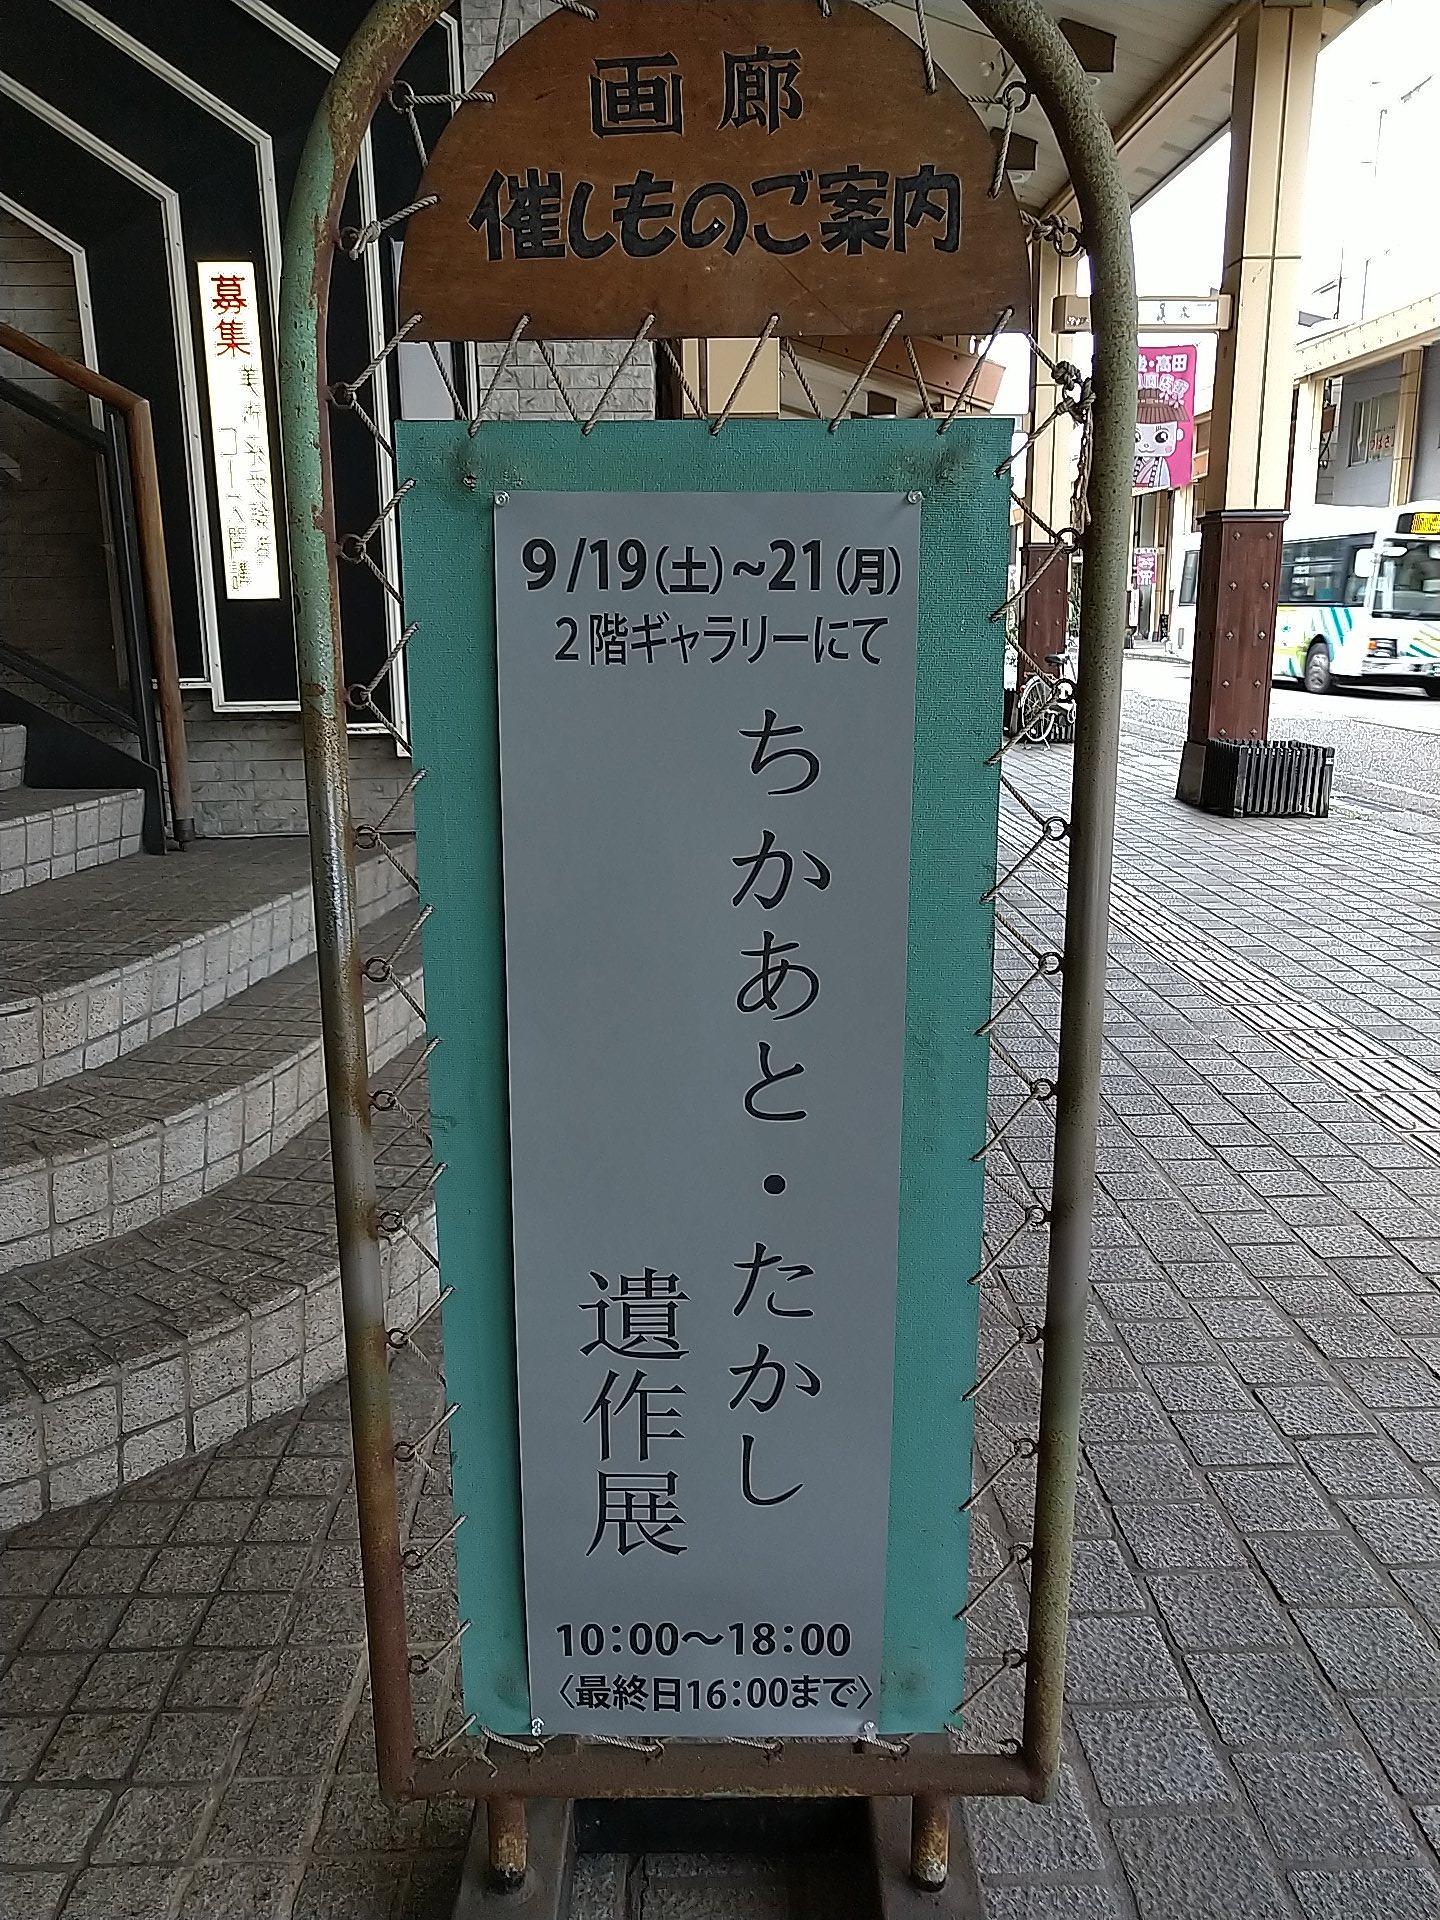 画廊
催しものご案内
9/19(土)~21(月)
2階ギャラリーにて
ちかあと・たかし
遺作展
10:00~18:00
〈最終日16:00まで〉
募集
高田